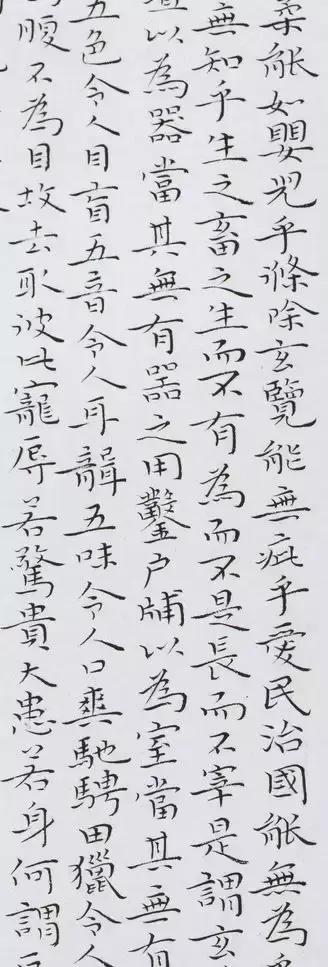 柔能如嬰兒乎滌除玄覽能無疵乎愛民治國能無為乎
無知乎生之畜之生而不有為而不是長而不宰是謂玄
以為器當其無有器之用鑿戶牖以為室當其無有
五色令人目盲五音令人耳聾五味令人口爽馳騁田獵令人
腹不為目故去取彼此寵辱若驚貴大患若身何謂